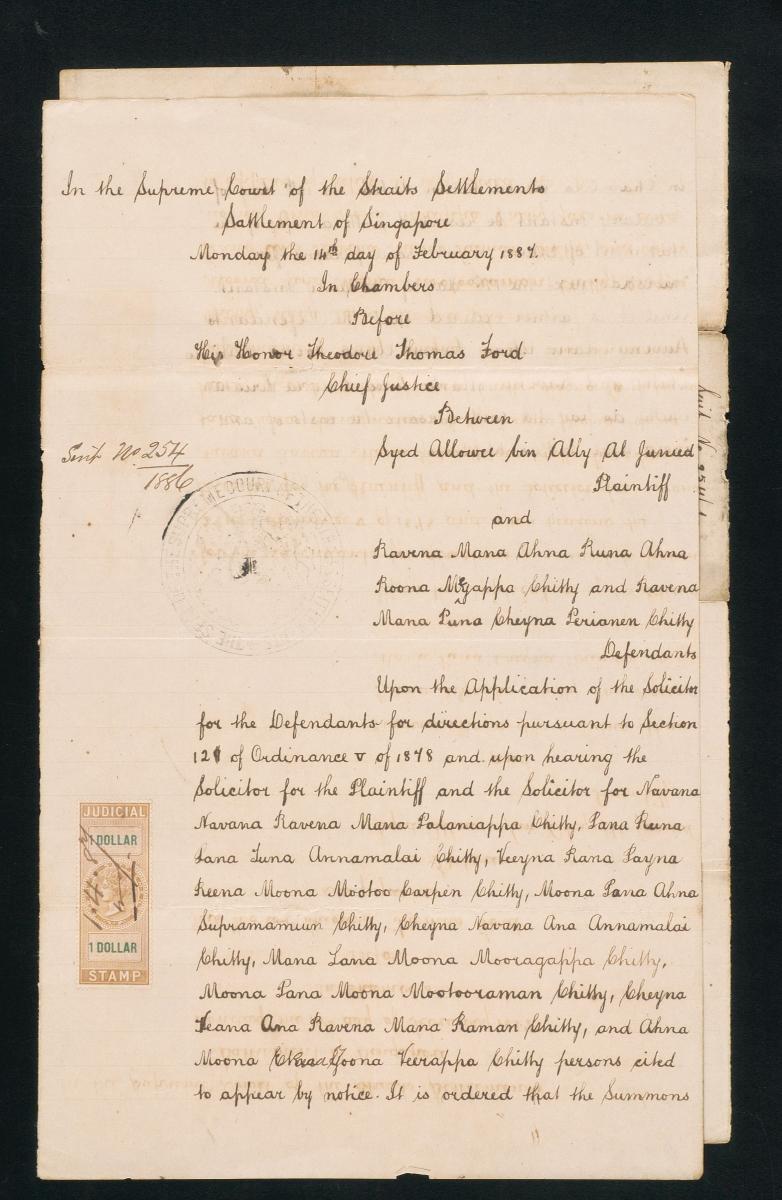 In the Supreme Court of the Straits Settlements
Sattlement of Singapore
Monday the 14th day of February 1887.
In Chambers
Before
His Honor Theodore Thomas Ford
Chief Justice
Between
Suit No 254
1886
Syed Allowee bin Ally Al Junied
Plaintiff
and
Ravena Mana Ahna Runa Ahna
Roona Megappa Chitty and Ravena
Mana Puna Cheyna Perianen Chitty
Defendants
Upon the Application of the Solicitor
for the Defendants for directions pursuant to Section
121 of Ordinance V of 1878 and upon hearing the
Solicitor for the Plaintiff and the Solicitor for Navana
Navana Ravena Mana Palaniappa Chitty, Pana Runa
Lana Tuna Annamalai Chitty, Veeyna Rana Payna
Reena Moona Mootoo Carpen Chitty, Moona Pana Ahna
Supramaniun Chitty, Cheyna Navana Ana Annamalai
Chitty, Mana Lana Moona Mooragappa Chitty,
Moona Pana Moona Mootooraman Chitty, Cheyna
Veana Ana Ravena Mana Raman Chitty, and Ahna
Moona Yoona Veerappa Chitty persons cited
to appear by notice. It is ordered that the Summons
JUDICIAL
1 DOLLAR
1.4.87
1 DOLLAR
STAMP
Suit No